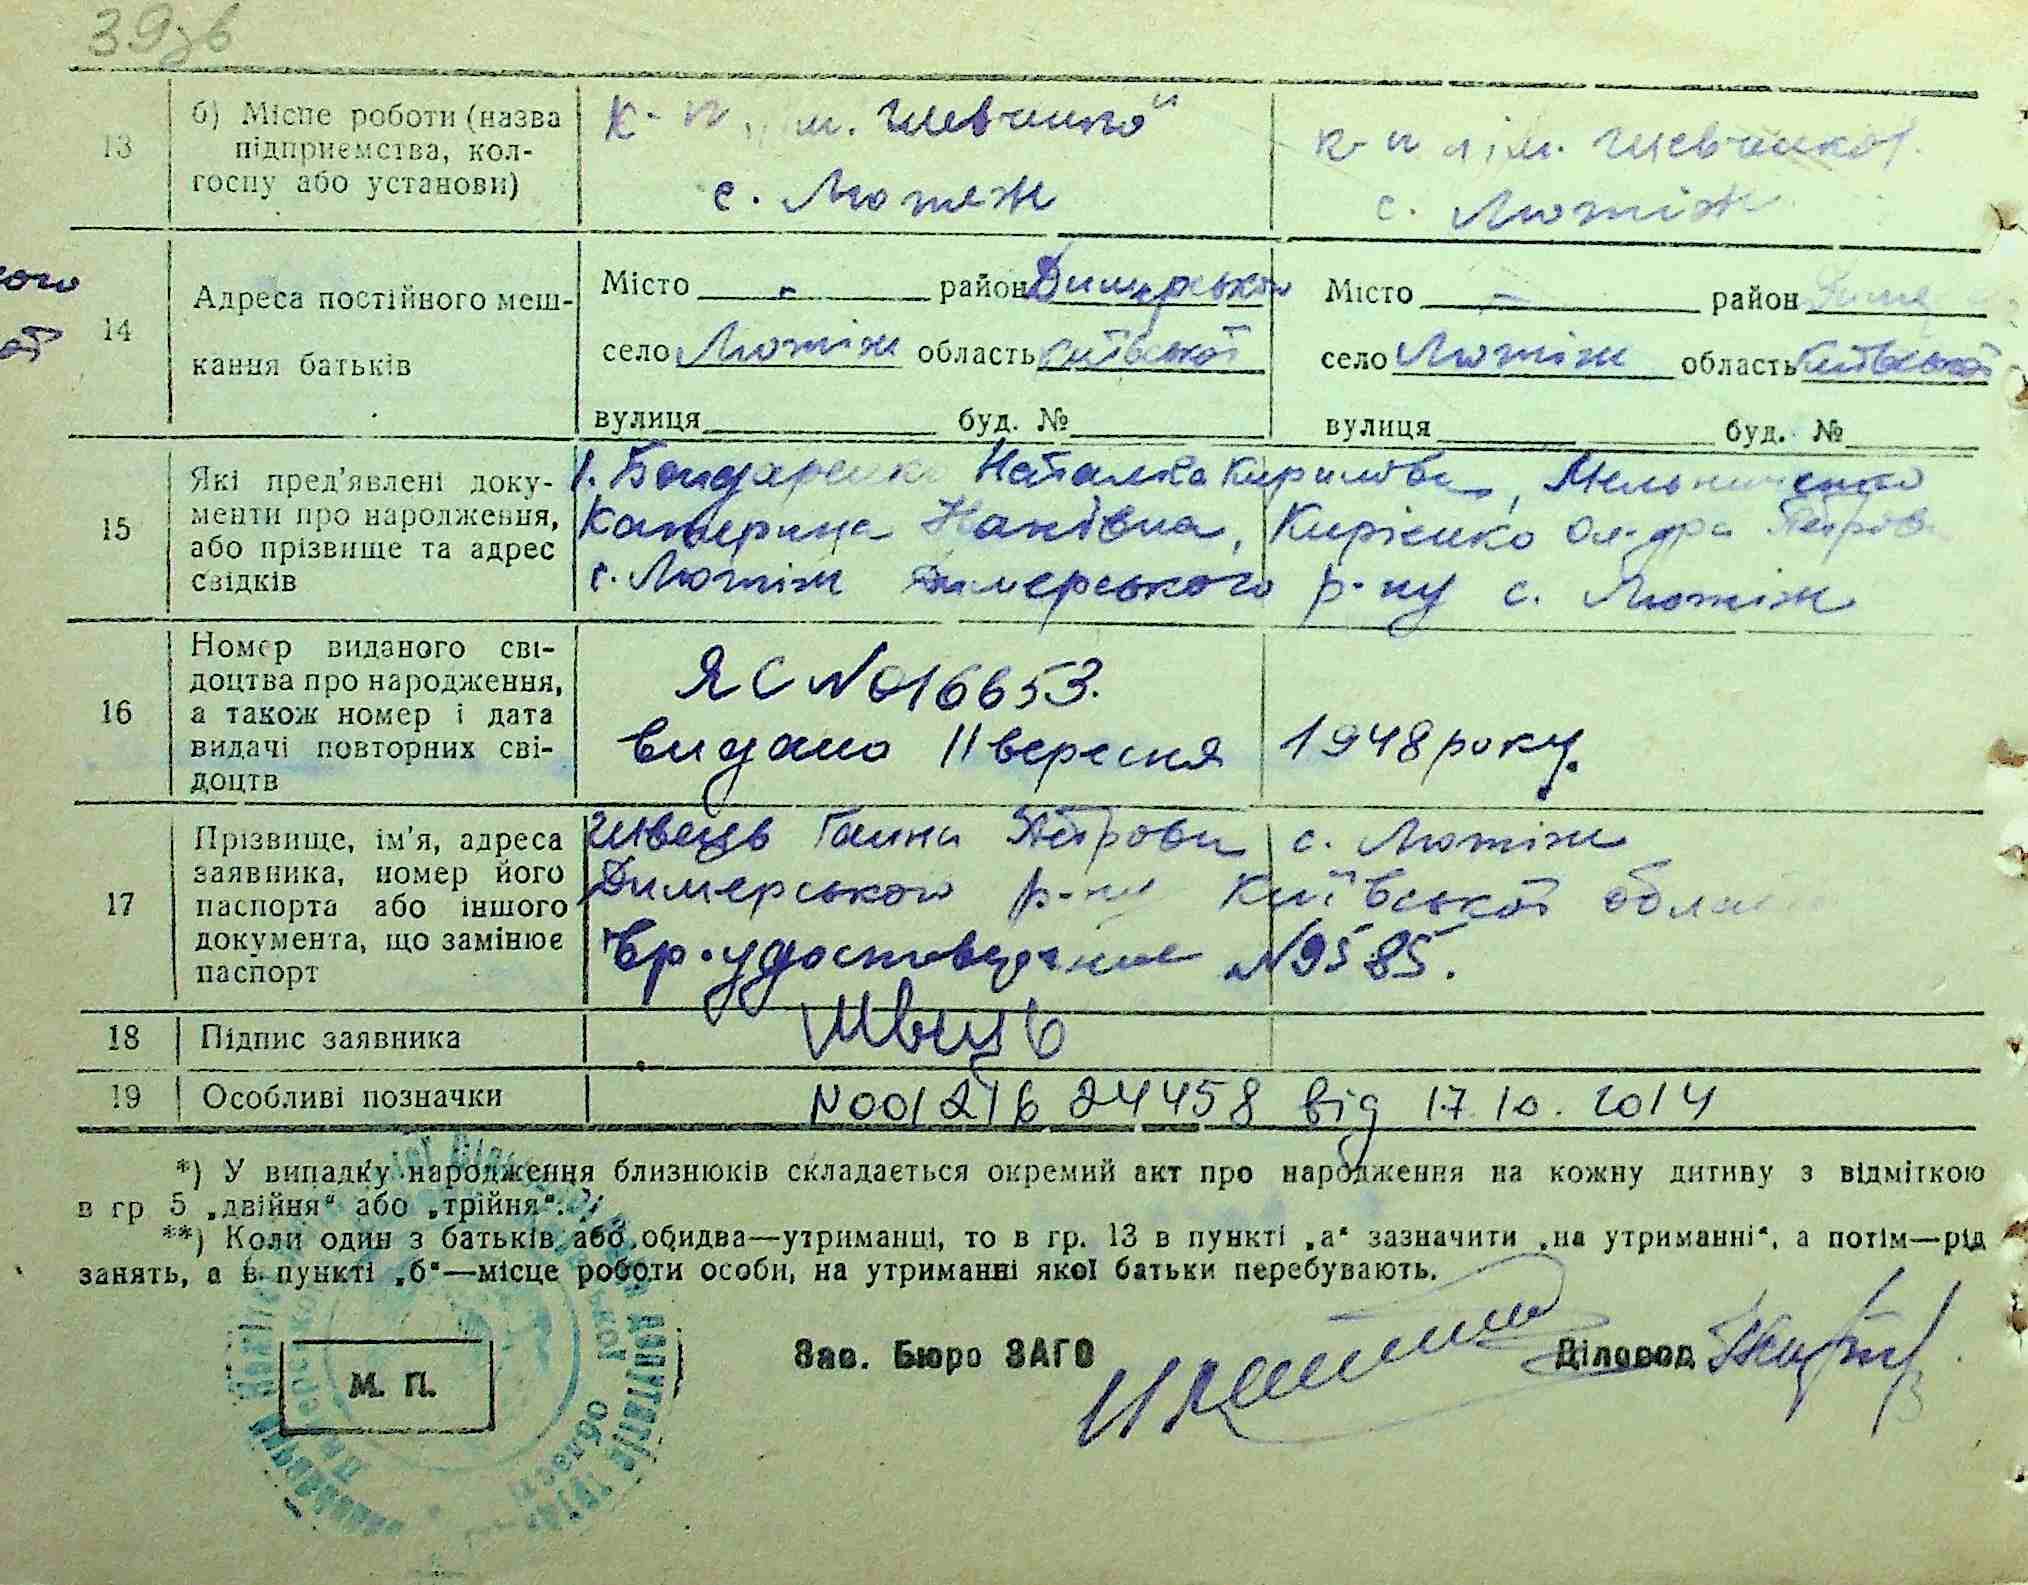 39зв
13
б) Місце роботи (назва
підприємства, кол-
госпу або установи)
к-п „ім. Шевченка"
с. Лютеж
к-п ім. Шевченка
с. Лютіж
14
Адреса постійного меш-
кання батьків
Місто - район Димерського
село Лютіж область Київської
вулиця буд. №
Місто - район Диме
село Лютіж область Київської
вулиця буд. №
15
Які пред'явлені доку-
менти про народження,
або прізвище та адрес
свідків
1. Бондаренко Наталка Кирилівна, Мельниченко
Катерина, Кирієнко Ол-дра Петрів
с. Лютіж Димерського р-ну с. Лютіж
16
Номер виданого сві-
доцтва про народження,
а також номер і дата
видачі повторних сві-
доцтв
ЯС №016653.
видано 11 вересня 1948 року.
17
Прізвище, ім'я, адреса
заявника, номер його
паспорта або іншого
документа, що замінює
паспорт
Швець Ганна Петровн с. Лютіж
Димерського р-ну Київської област
Вр. удостоверение №9585.
18
Підпис заявника
Швець
19
Особливі позначки
№00121624458 від 17.10.2014
*) У випадку народження близнюків складається окремий акт про народження на кожну дитину з відміткою
в гр 5 „двійня" або „трійня".
**) Коли один з батьків або обидва—утриманці, то в гр. 13 в пункті „а" зазначити „на утриманні", а потім—рід
занять, а в пункті „б"—місце роботи особи, на утриманні якої батьки перебувають.
Зав. Бюро ЗАГС
Діловод
М. П.